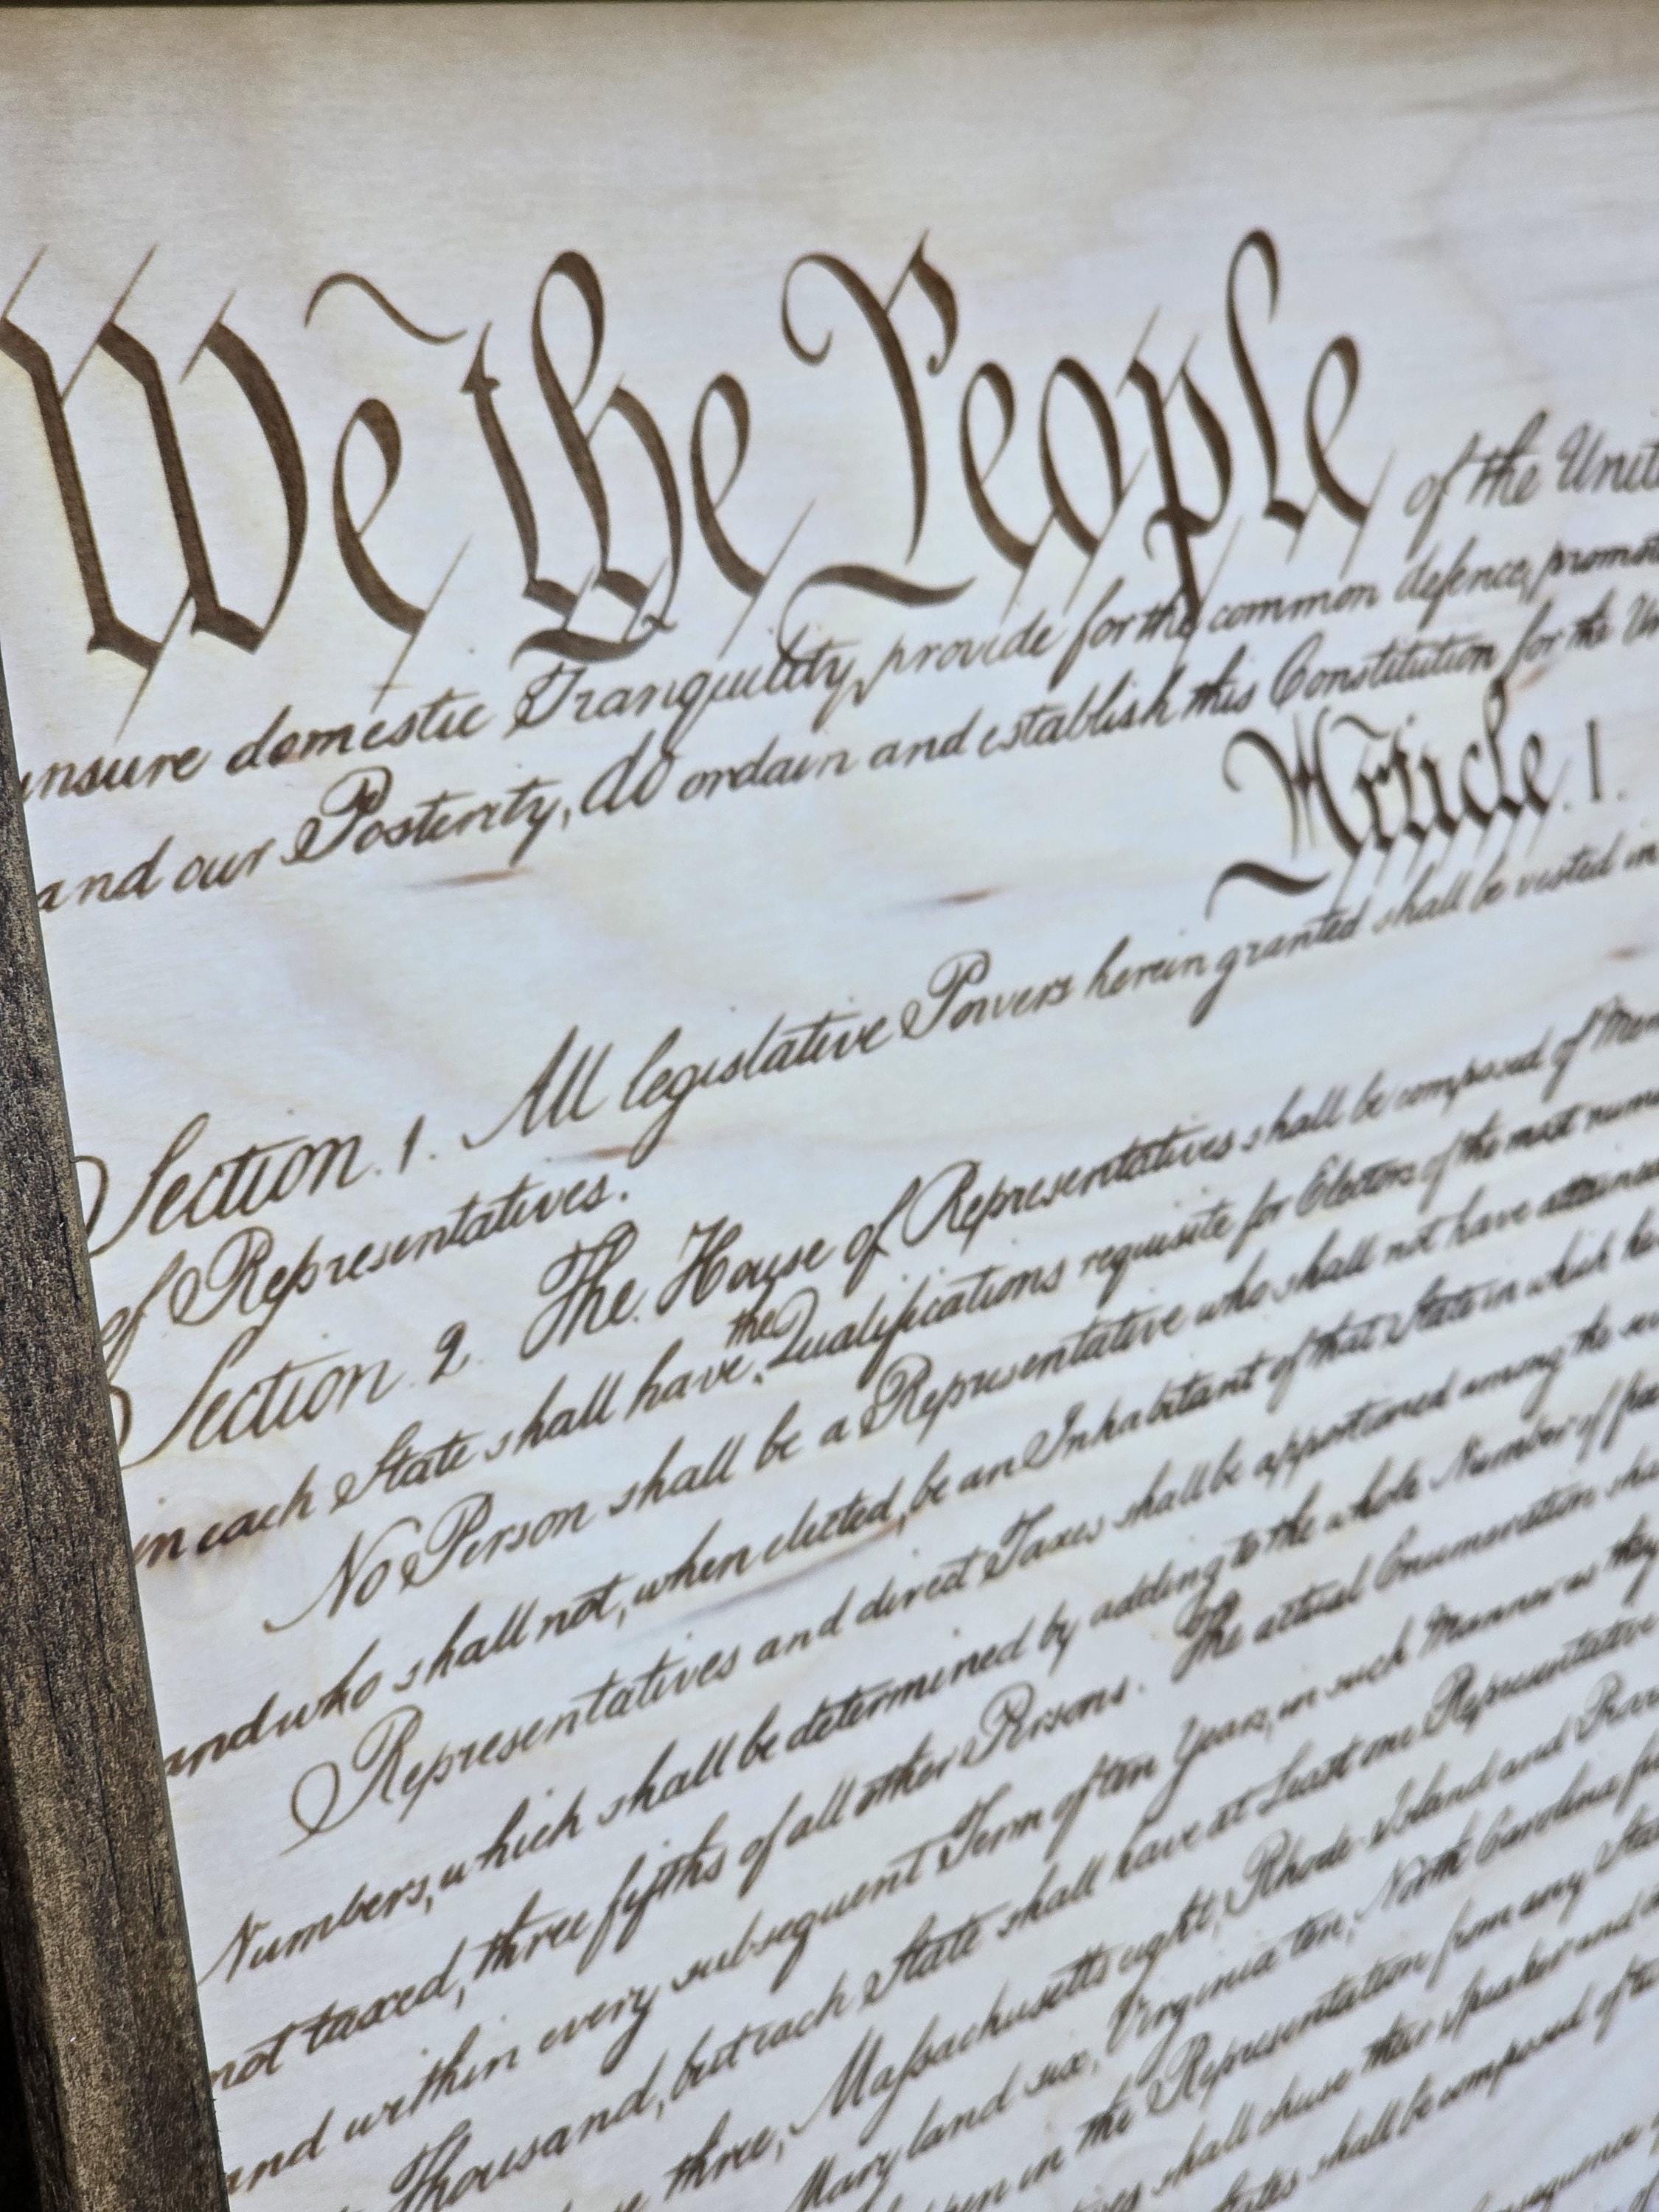 We the People of the Unit
insure domestic Tranquility, provide for the common defence, promot
and our Posterity, do ordain and establish this Constitution for the Un
Article. 1.
Section. 1. All legislative Powers herein granted shall be vested in
of Representatives.
Section. 2. The House of Representatives shall be composed of Mem
in each State shall have the Qualifications requisite for Electors of the most nume
No Person shall be a Representative who shall not have attained
and who shall not, when elected, be an Inhabitant of that State in which he
Representatives and direct Taxes shall be apportioned among the se
Numbers, which shall be determined by adding to the whole Number of free
not taxed, three fifths of all other Persons. The actual Enumeration shall
and within every subsequent Term of ten Years, in such Manner as they
Thousand, but each State shall have at Least one Representative
three, Massachusetts eight, Rhode-Island and Provi
Maryland six, Virginia ten, North Carolina fi
in the Representation from any Stat
shall chuse their Speaker and
shall be composed of two